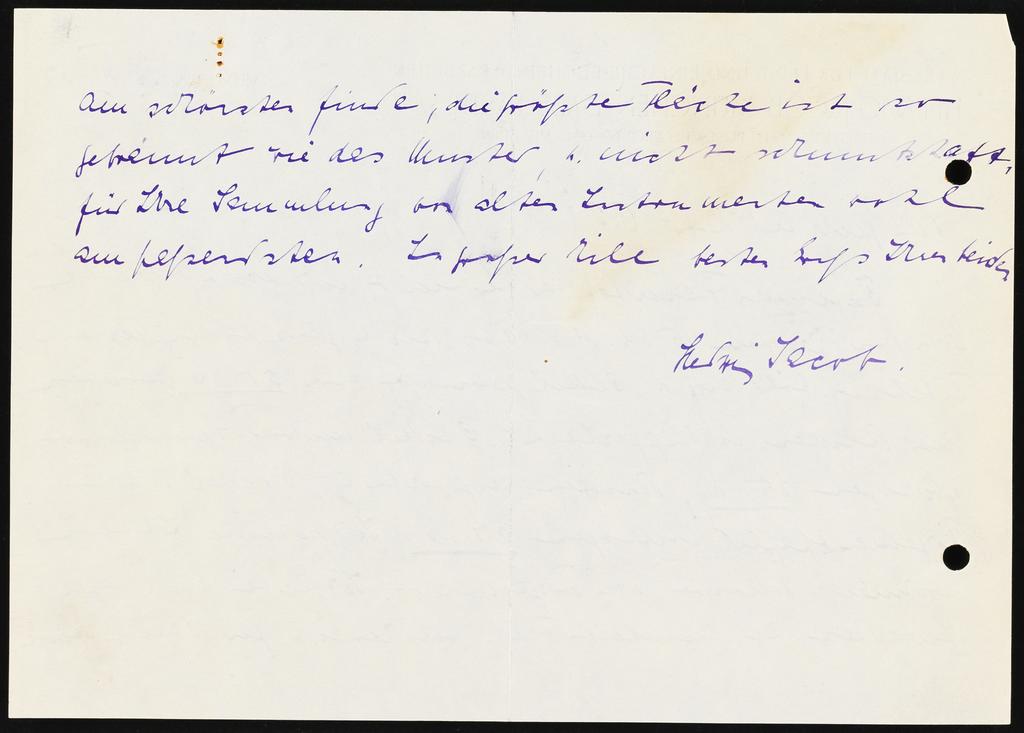 am schönsten finde, die größte Fläche ist so
getrennt wie das Muster u. nicht schmutzhaft,
für Ihre Sammlung von alten Instrumenten wohl
am passendsten. In großer Eile besten Gruß Ihnen beiden
Hedwig Jacob.